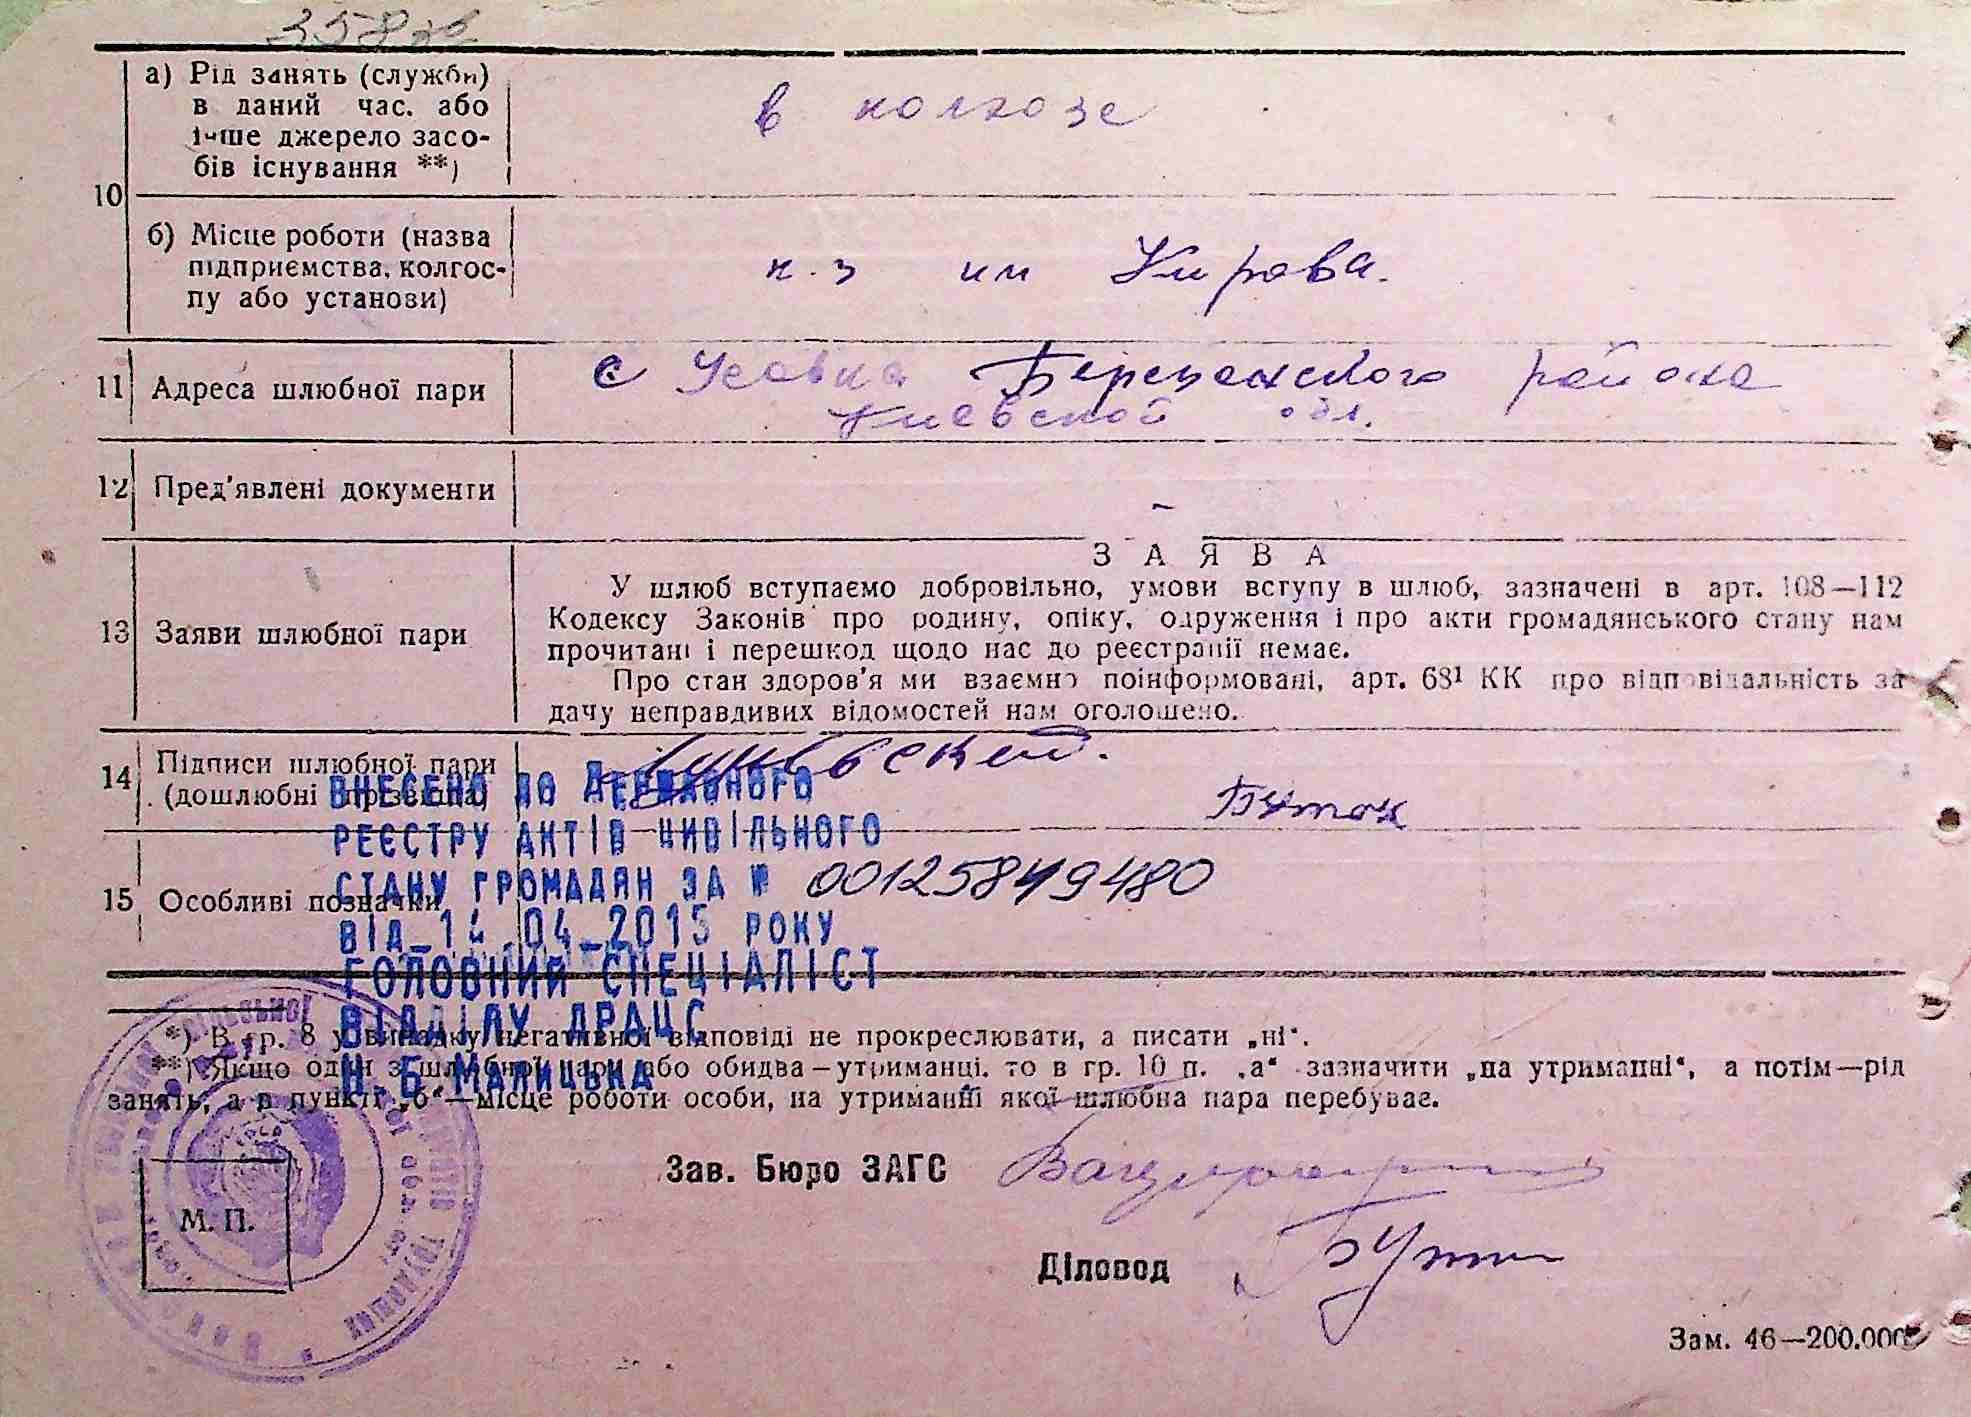 а) Рід занять (служби)
в даний час. або
інше джерело засо-
бів існування **)
в колхозе
10
б) Місце роботи (назва
підприємства, колгос-
пу або установи)
к.з им Кирова.
11 Адреса шлюбної пари
с Усовка Березанского района
Киевской обл.
12 Пред'явлені документи
-
13 Заяви шлюбної пари
ЗАЯВА
У шлюб вступаємо добровільно, умови вступу в шлюб, зазначені в арт. 108—112
Кодексу Законів про родину, опіку, одруження і про акти громадянського стану нам
прочитані і перешкод щодо нас до реєстрації немає.
Про стан здоров'я ми взаємно поінформовані, арт. 68¹ КК про відповідальність за
дачу неправдивих відомостей нам оголошено.
14 Підписи шлюбної пари
(дошлюбні прізвища)
Буток
ВНЕСЕНО ДО ДЕРЖАВНОГО
РЕЄСТРУ АКТІВ ЦИВІЛЬНОГО
СТАНУ ГРОМАДЯН ЗА № 00125849480
ВІД 14.04.2015 РОКУ
ГОЛОВНИЙ СПЕЦІАЛІСТ
ВІДДІЛУ ДРАЦС
Н.Б.МАЛИЦЬКА
15 Особливі позначки
*) В гр. 8 у випадку негативної відповіді не прокреслювати, а писати „ні“.
**) Якщо один з шлюбної пари або обидва—утриманці. то в гр. 10 п. „а“ зазначити „на утриманні“, а потім—рід
занять, а в пункті „б“—місце роботи особи, на утриманні якої шлюбна пара перебуває.
Зав. Бюро ЗАГС
М. П.
Діловод
Зам. 46—200.000